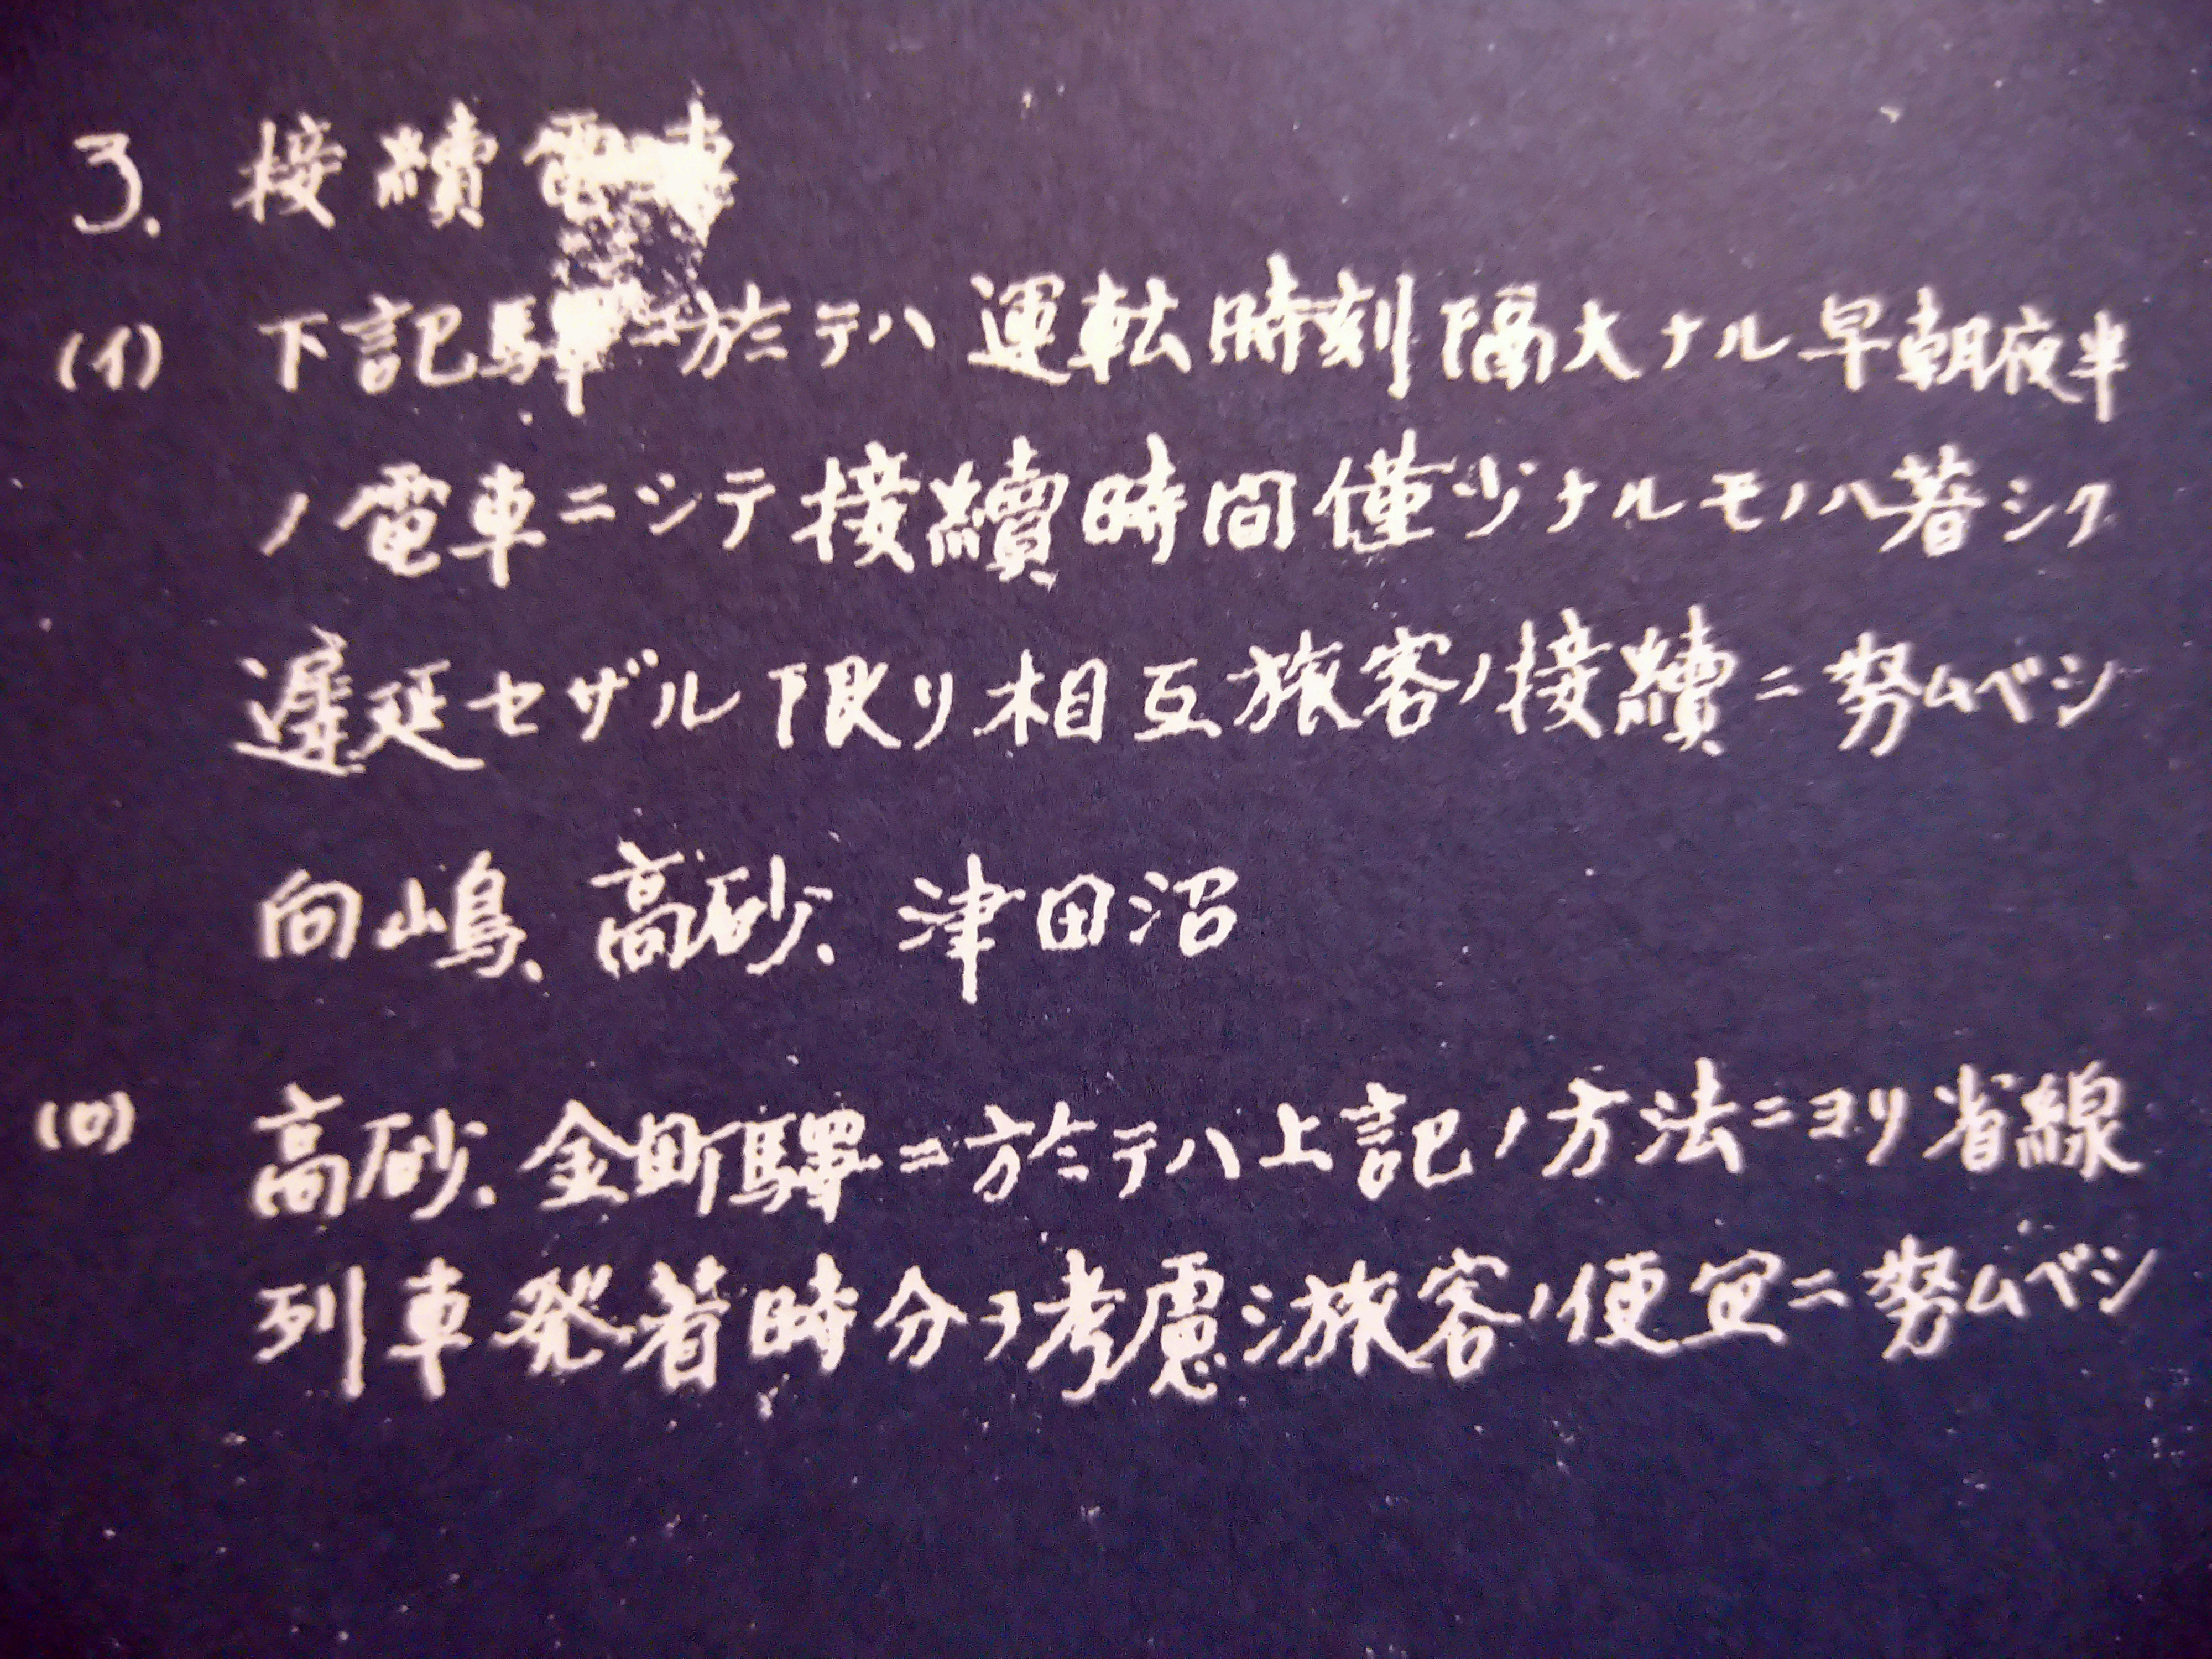 3. 接續電車
(イ) 下記驛ニ於テハ運転時刻隔大ナル早朝夜半
ノ電車ニシテ接續時間僅少ナルモノハ著シク
遅延セザル限リ相互旅客ノ接續ニ努ムベシ
向嶋、高砂、津田沼
(ロ) 高砂、金町驛ニ於テハ上記ノ方法ニヨリ省線
列車発着時分ヲ考慮シ旅客ノ便宜ニ努ムベシ